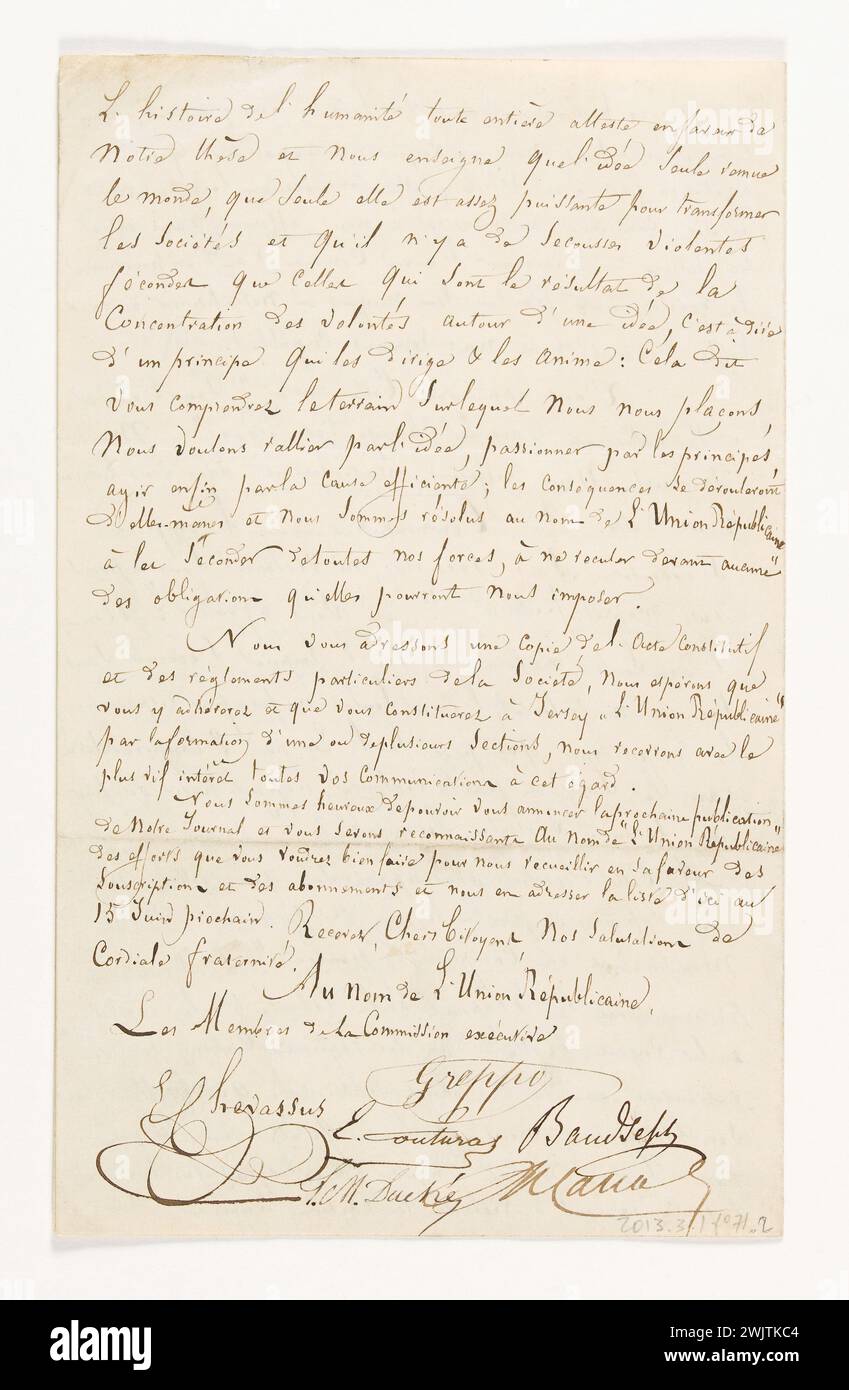 L'histoire de l'humanité toute entière atteste en faveur de
Notre thèse et Nous enseigne que l'idée seule remue
le monde, que seule elle est assez puissante pour transformer
les Sociétés et qu'il n'y a de Secousses Violentes
fécondes que Celles qui sont le résultat de la
Concentration des volontés autour d'une idée, c'est à dire
d'un principe qui les dirige & les anime : Cela dit
vous comprendrez le terrain sur lequel Nous nous plaçons,
Nous voulons rallier par l'idée, passionner par les principes,
agir enfin par la cause efficiente ; les conséquences se dérouleront
d'elles-mêmes et nous sommes résolus au nom de L'Union Républicaine
à les Séconder de toutes nos forces, à ne reculer devant aucune
des obligations qu'elles pourront nous imposer.
Nous vous adressons une Copie de l'acte Constitutif
et des réglements particuliers de la Société, nous espérons que
vous y adhérerez et que vous constituerez à Jersey "L'Union Républicaine"
par la formation d'une ou de plusieurs Sections, nous recevrons avec le
plus vif intérêt toutes vos communications à cet égard.
Nous sommes heureux de pouvoir vous annoncer la prochaine publication
de Notre Journal et vous serons reconnaissants au nom de "L'Union Républicaine"
des efforts que vous voudrez bien faire pour nous recueillir en sa faveur des
Souscriptions et des abonnements et nous en adresser la liste d'ici au
15 Juin prochain. Recevez, Chers Citoyens, Nos Salutations de
Cordiale fraternité.
Au nom de L'Union Républicaine,
Les Membres de la Commission exécutive
Greppo
Chevassus
E. Couturat
2013.3.1 f°71.2
alamy
Image ID: 2WJTKC4
www.alamy.com